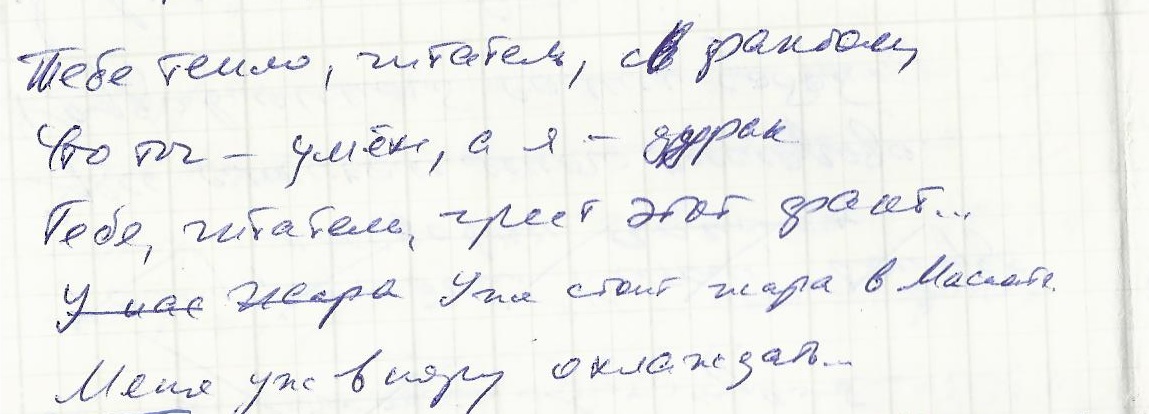 Тебе тепло, читатель, с фактом,
Что ты – умён, а я – дурак
Тебе, читатель, греет этот факт...
У нас Жара Уже стоит жара в Маскате.
Меня уж впору охлаждать...